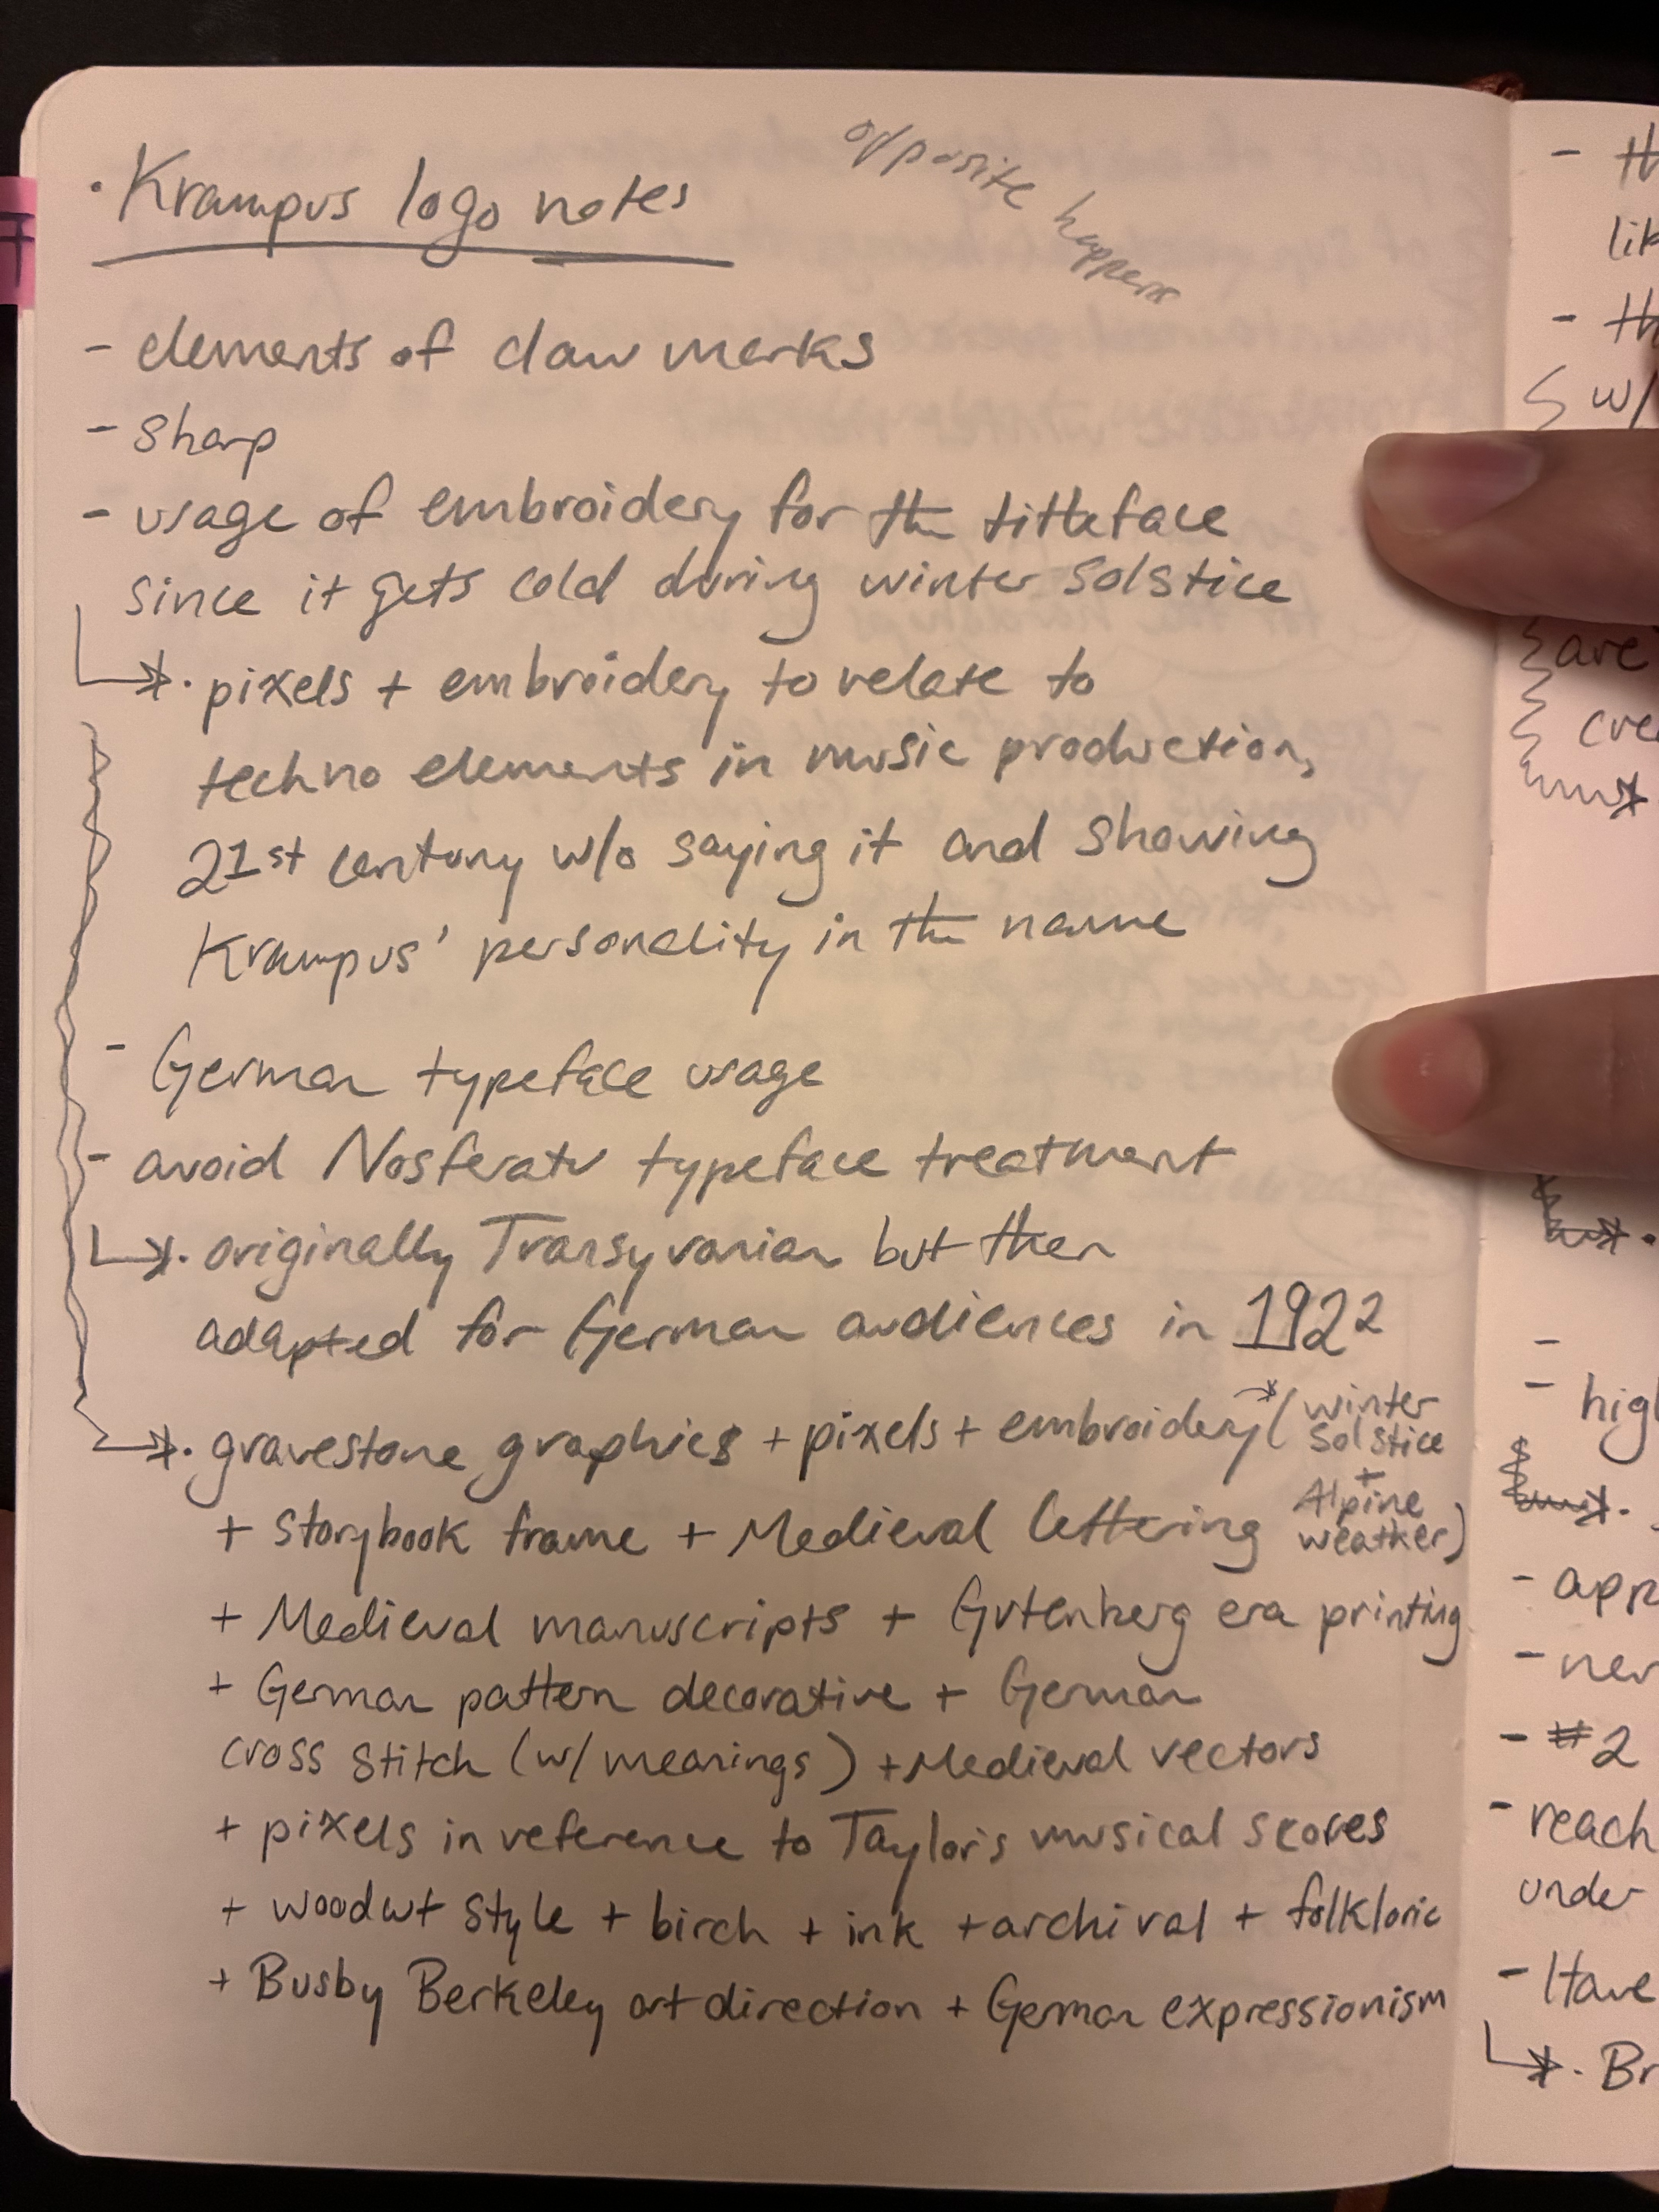 · Krampus logo notes
opposite happens
- elements of claw marks
- sharp
- usage of embroidery for the titleface
since it gets cold during winter solstice
· pixels + embroidery to relate to
techno elements in music production,
21st century w/o saying it and showing
Krampus' personality in the name
- German typeface usage
- avoid Nosferatu typeface treatment
· originally Transyvanian but then
adapted for German audiences in 1922
· gravestone graphics + pixels + embroidery (winter
solstice
+ storybook frame + Medieval lettering + Alpine
weather)
+ Medieval manuscripts + Gutenberg era printing
+ German pattern decorative + German
cross stitch (w/ meanings) + Medieval vectors
+ pixels in reference to Taylor's musical scores
+ woodcut style + birch + ink + archival + folkloric
+ Busby Berkeley art direction + German expressionism
- th
lik
- th
w/
are
cre
-
- hig
- app
- ner
- #2
- reach
under
- Have
· Br